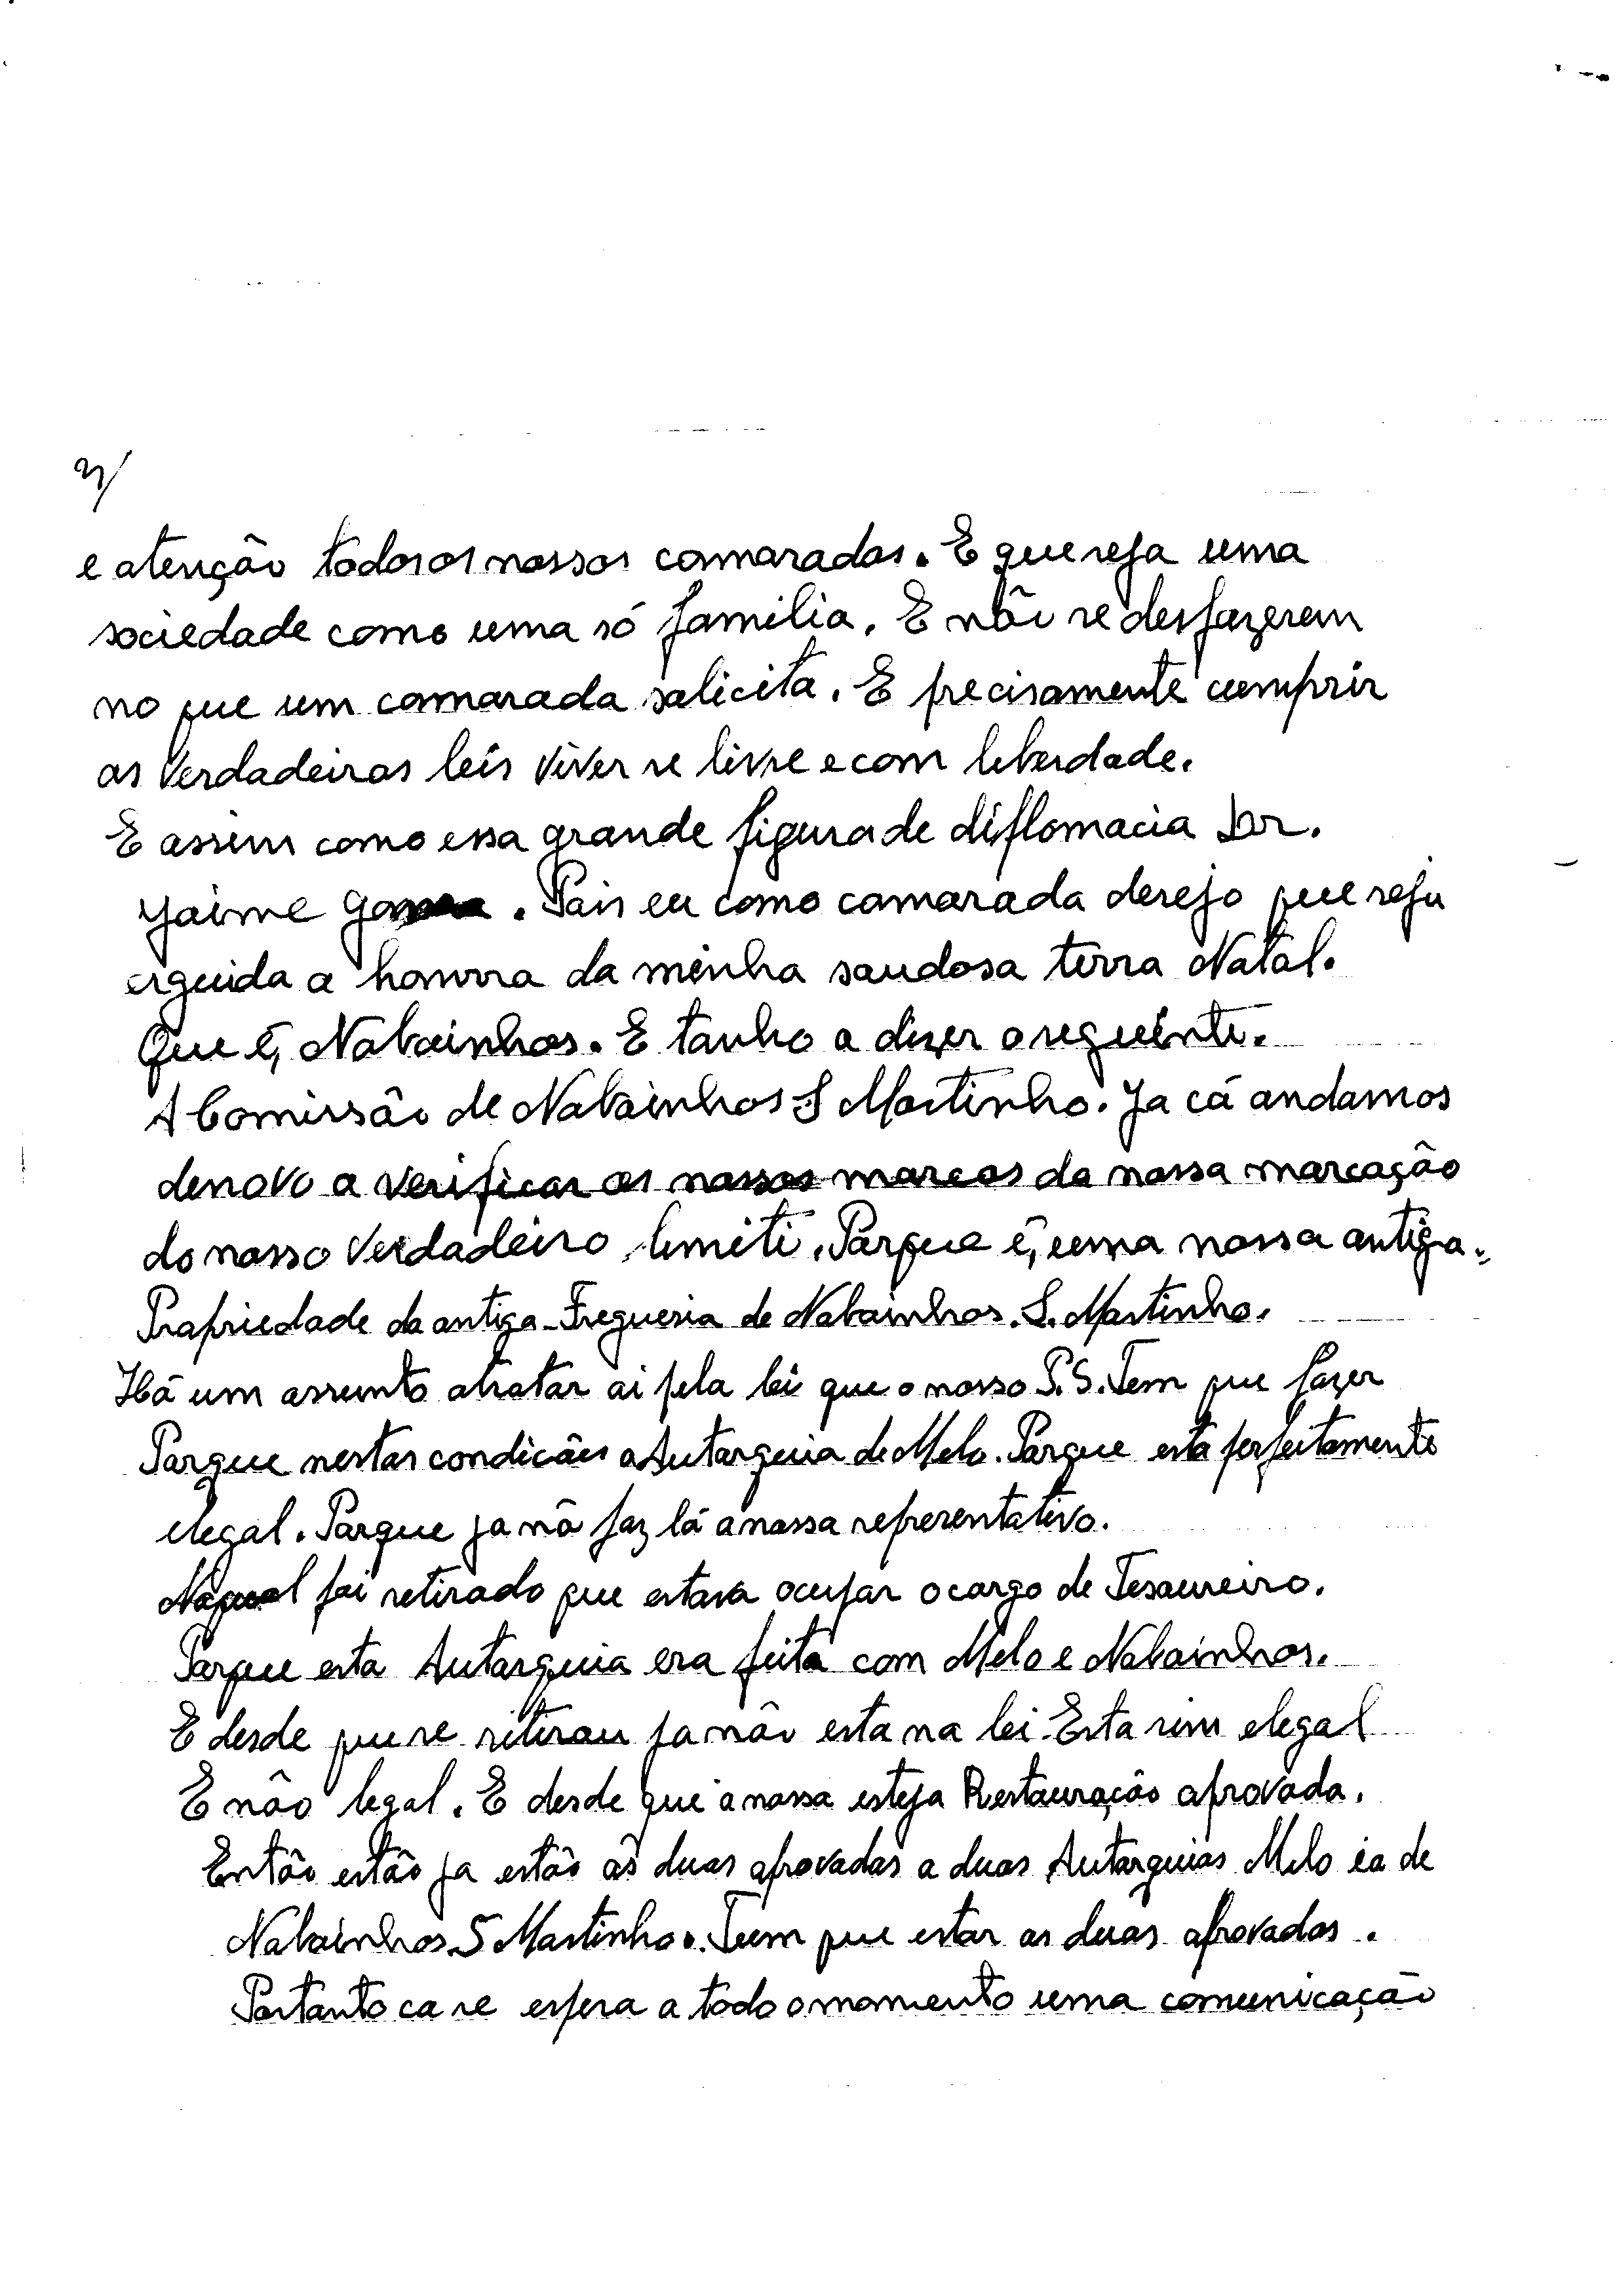 3/
e atenção todos os nossos camaradas. E que seja uma
sociedade como uma só familia. E não se desfazerem
no que um camarada salicita. E precisamente cumprir
as verdadeiras leis viver se livre e com leberdade.
E assim como essa grande figura de diflomacia Dr.
Jaime Gama. Pais eu como camarada desejo que seja
erguida a honrra da minha saudosa terra Natal.
Que é, Nabainhos. E tanho a dizer o seguinte.
A Comissão de Nabainhos S Martinho. Ja cá andamos
denovo a verificar os nossos marcos da nossa marcação
do nosso verdadeiro limiti. Parque é, uma nossa antiga.
Prapriedade da antiga Freguesia de Nabainhos. S. Martinho.
Há um assunto atratar ai pela lei que o nosso P.S. Tem que fazer
Parque nestas condicães a Autarquia de Melo. Parque esta perfeitamente
elegal. Parque ja nã faz lá a nassa representativo.
Naqual foi retirado que estava ocupar o cargo de Tesaureiro.
Parque esta Autarquia era feita com Melo e Nabainhos.
E desde que se retirau ja não esta na lei. Esta sim elegal
E não legal. E desde que a nassa esteja Restauração aprovada.
Então estão ja estão as duas aprovadas a duas Autarquias Melo ea de
Nabainhos S Martinho. Teem que estar as duas aprovadas.
Portanto ca se espera a todo o momento uma comunicação